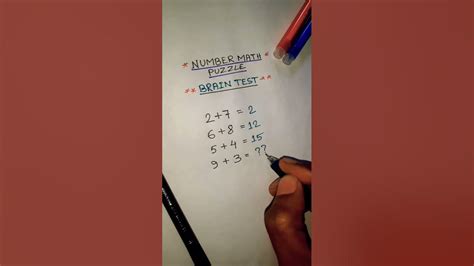 * NUMBER MATH *
PUZZLE
** BRAIN TEST **
2+7 = 2
6+8 = 12
5+4 = 15
9+3 = ??